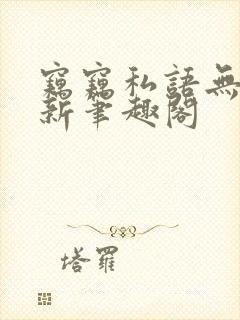 竊竊私語無
新筆趣閣
塔羅